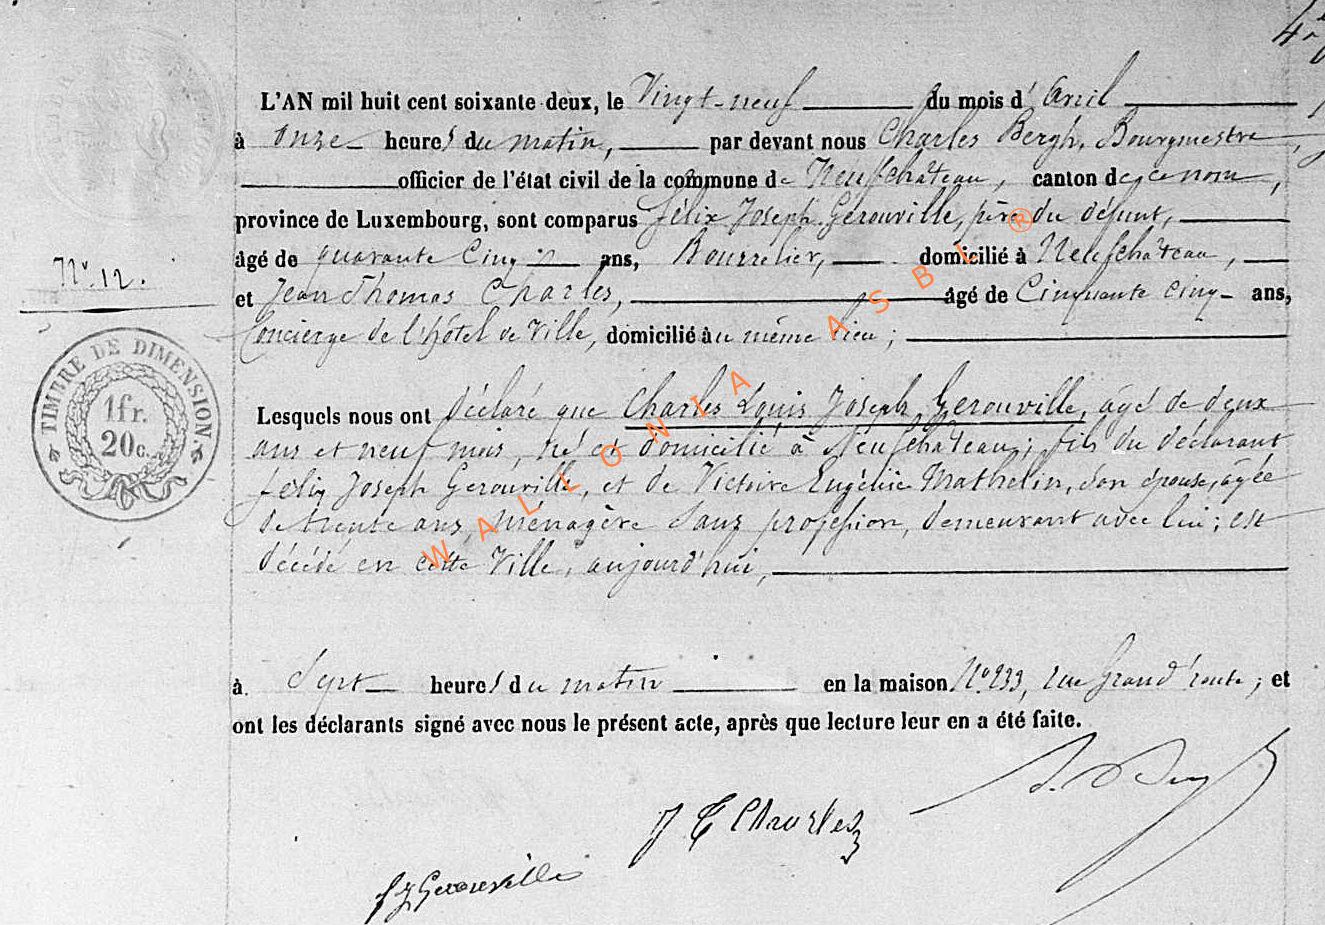 L'AN mil huit cent soixante deux, le Vingt-neuf du mois d'Avril
à onze heures du matin, par devant nous Charles Bergh, Bourgmestre,
officier de l'état civil de la commune de Neufchâteau, canton de ce nom,
province de Luxembourg, sont comparus Félix Joseph Gerouville, père du défunt,
âgé de quarante Cinq ans, Bourrelier, domicilié à Neufchâteau,
N°. 12.
et Jean Thomas Charles, âgé de Cinquante cinq ans,
Concierge de l'hôtel de Ville, domicilié au même lieu;
TIMBRE DE DIMENSION.
1fr.
20c.
Lesquels nous ont déclaré que Charles Louis Joseph Gerouville, âgé de deux
ans et neuf mois, né et domicilié à Neufchâteau; fils du déclarant
Felix Joseph Gerouville, et de Victoire Eugénie Mathelin, son épouse, âgée
de trente ans, Ménagère Sans profession, demeurant avec lui; est
décédé en cette Ville, aujourd'hui,
à Sept heures du matin en la maison N° 233, rue Grand'route; et
ont les déclarants signé avec nous le présent acte, après que lecture leur en a été faite.
J T Charles
fJGerouville
WALLONIA ASBL ®